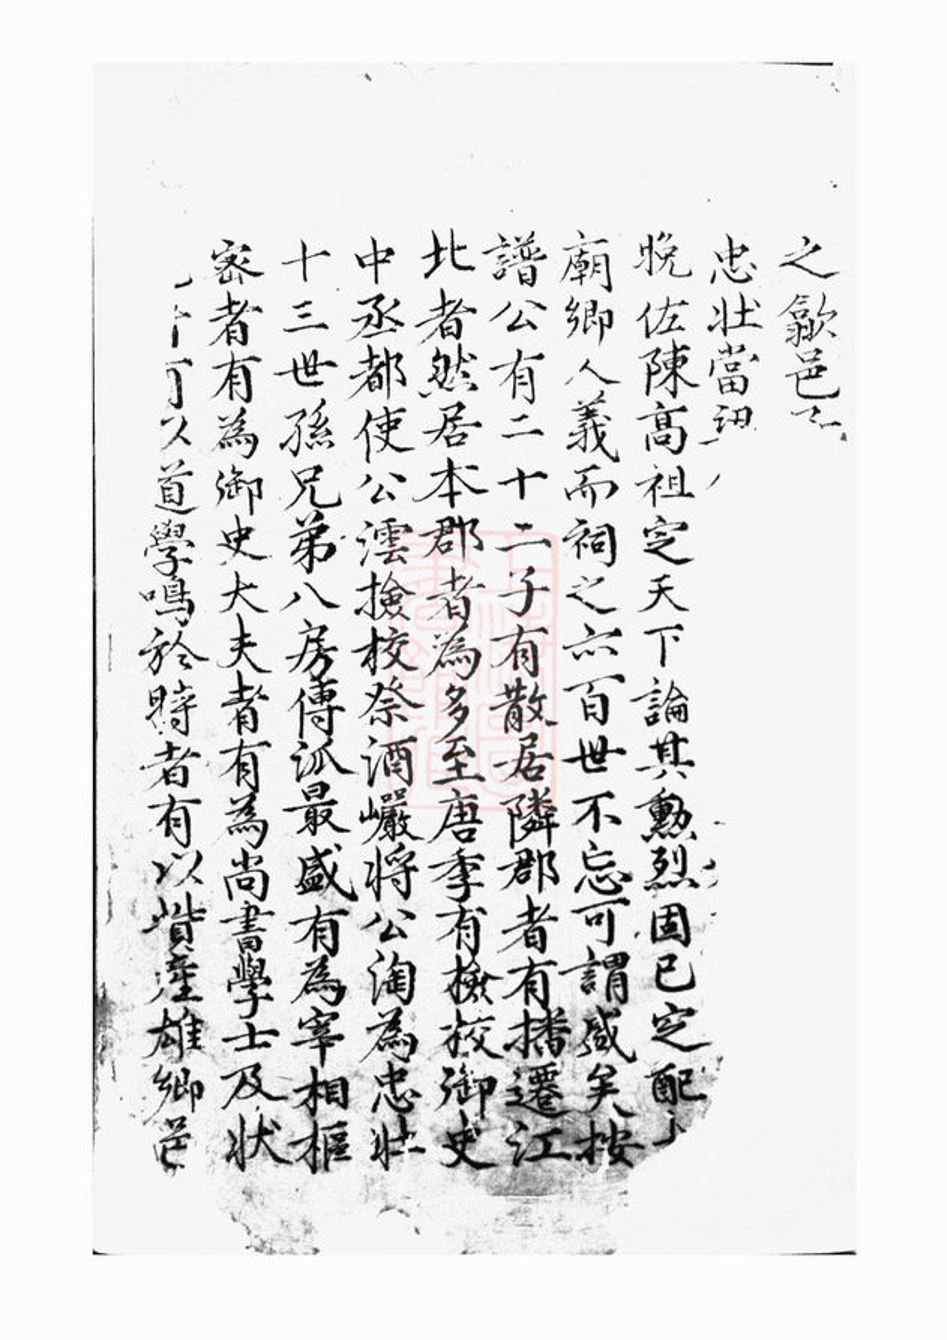 之歙邑
忠壯當
晚佐陳高祖定天下論其勳烈固已定配
廟鄉人義而祠之六百世不忘可謂盛矣按
譜公有二十二子有散居隣郡者有播遷江
北者然居本郡者為多至唐季有檢校御史
中丞都使公澐撿校祭酒巗将公淘為忠壮
十三世孫兄弟八房傳泒最盛有為宰相樞
宻者有為御史大夫者有為尚書學士及状
可以道學鳴於時者有以貲產雄鄉邑